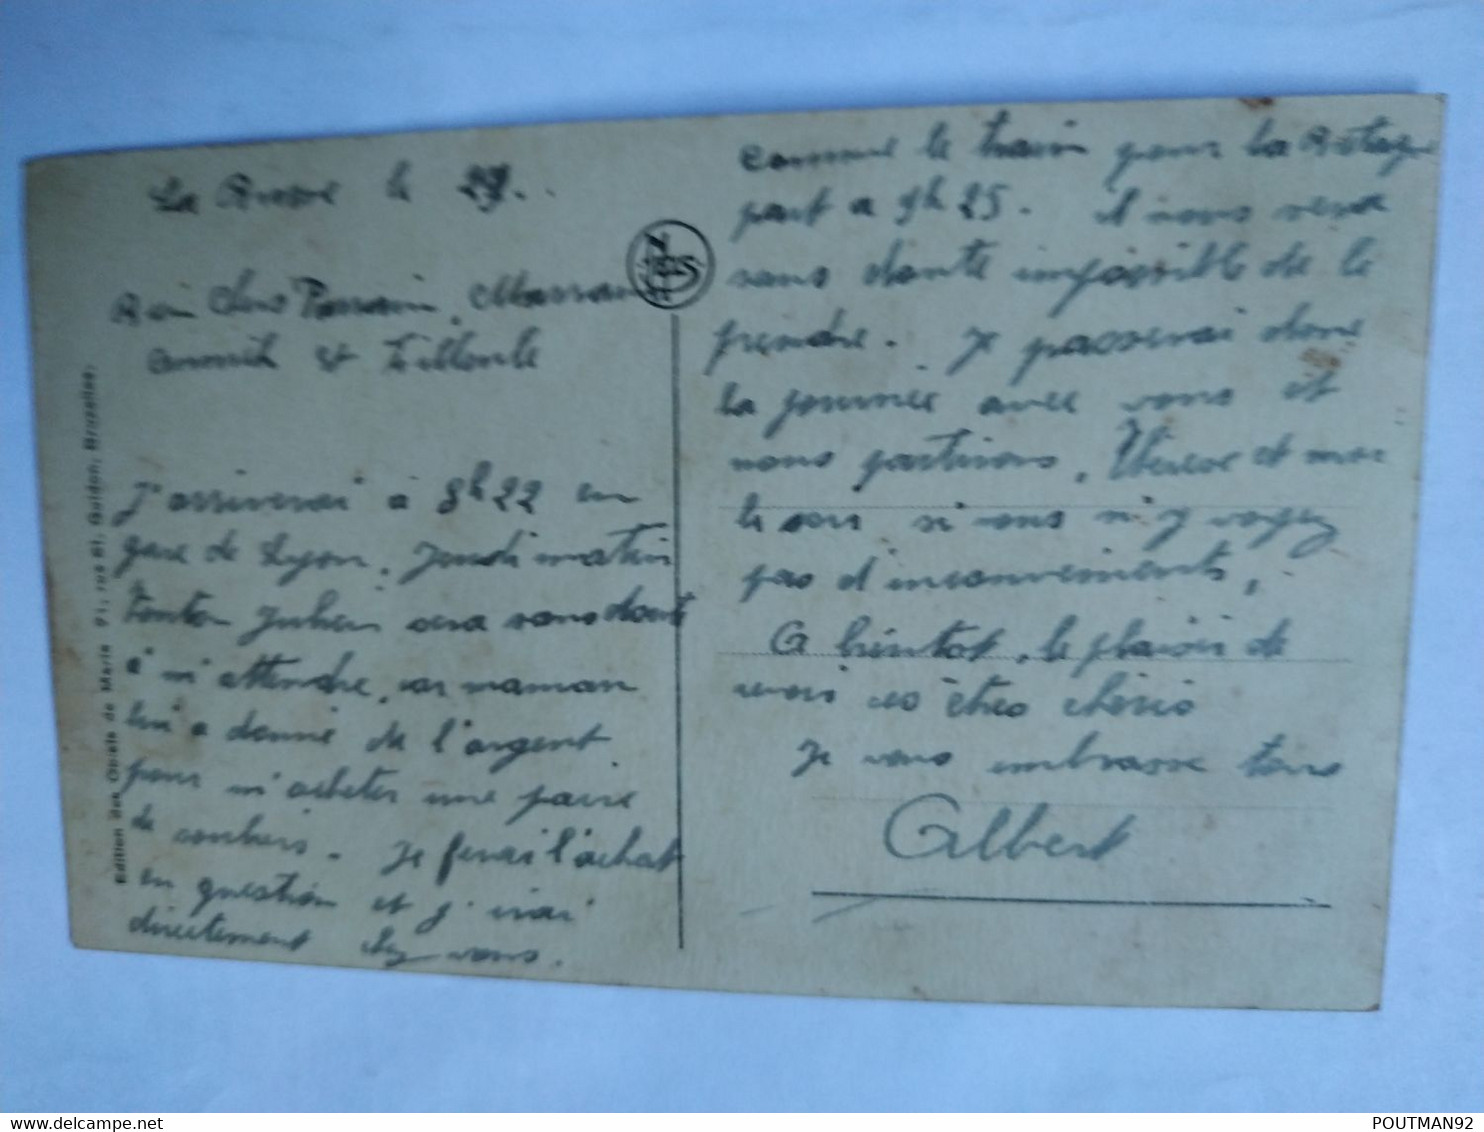 le 29.
Bien Chers Parrain, Marraine
et
J'arriverai à 8h22 en
gare de Lyon. Jeudi matin
Tonton Julien sera sans doute
à m'attendre, car maman
lui a donné de l'argent
pour m'acheter une paire
de souliers. Je ferai l'achat
en question et j'irai
directement chez vous.
comme le train pour la Bretagne
part a 9h25. il nous sera
sans doute impossible de le
prendre. Je passerai donc
la journée avec vous et
nous partirons, et moi
le soir si vous n'y voyez
pas d'inconvenients,
A bientot, le plaisir de
revoir ces êtres chéris
Je vous embrasse tous
Albert
Edition des Objets de Marie 91, rue St. Guidon, Bruxelles.
NELS
POUTMAN92